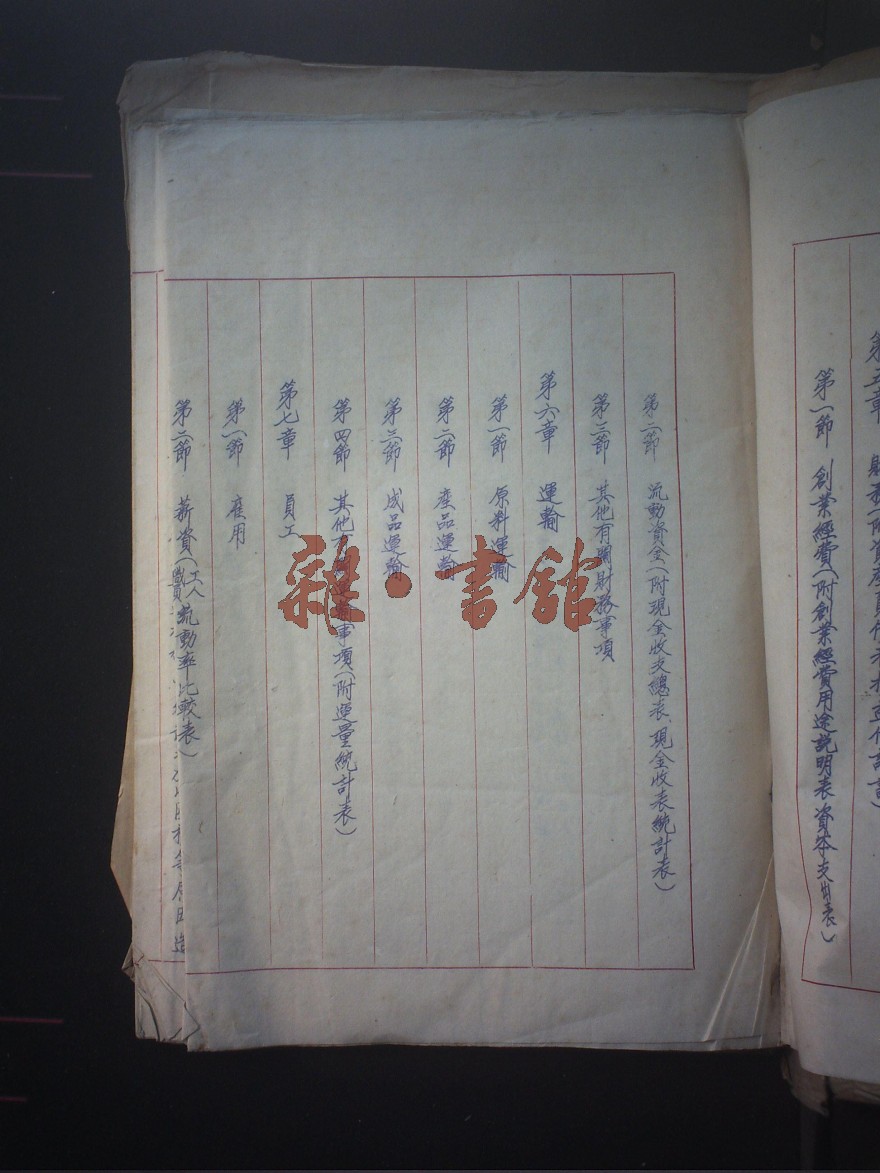 第五章
第一節 創業經費(附創業經費用途說明表資本支出表)
第二節 流動資金(附現金收支總表、現金收表統計表)
第三節 其他有關財務事項
第六章 運輸
第一節 原料運輸
第二節 產品運輸
第三節 成品運輸
第四節 其他有關運輸事項(附運量統計表)
第七章 員工
第一節 雇用
第二節 薪資(工人流動率比較表)
雜·書館